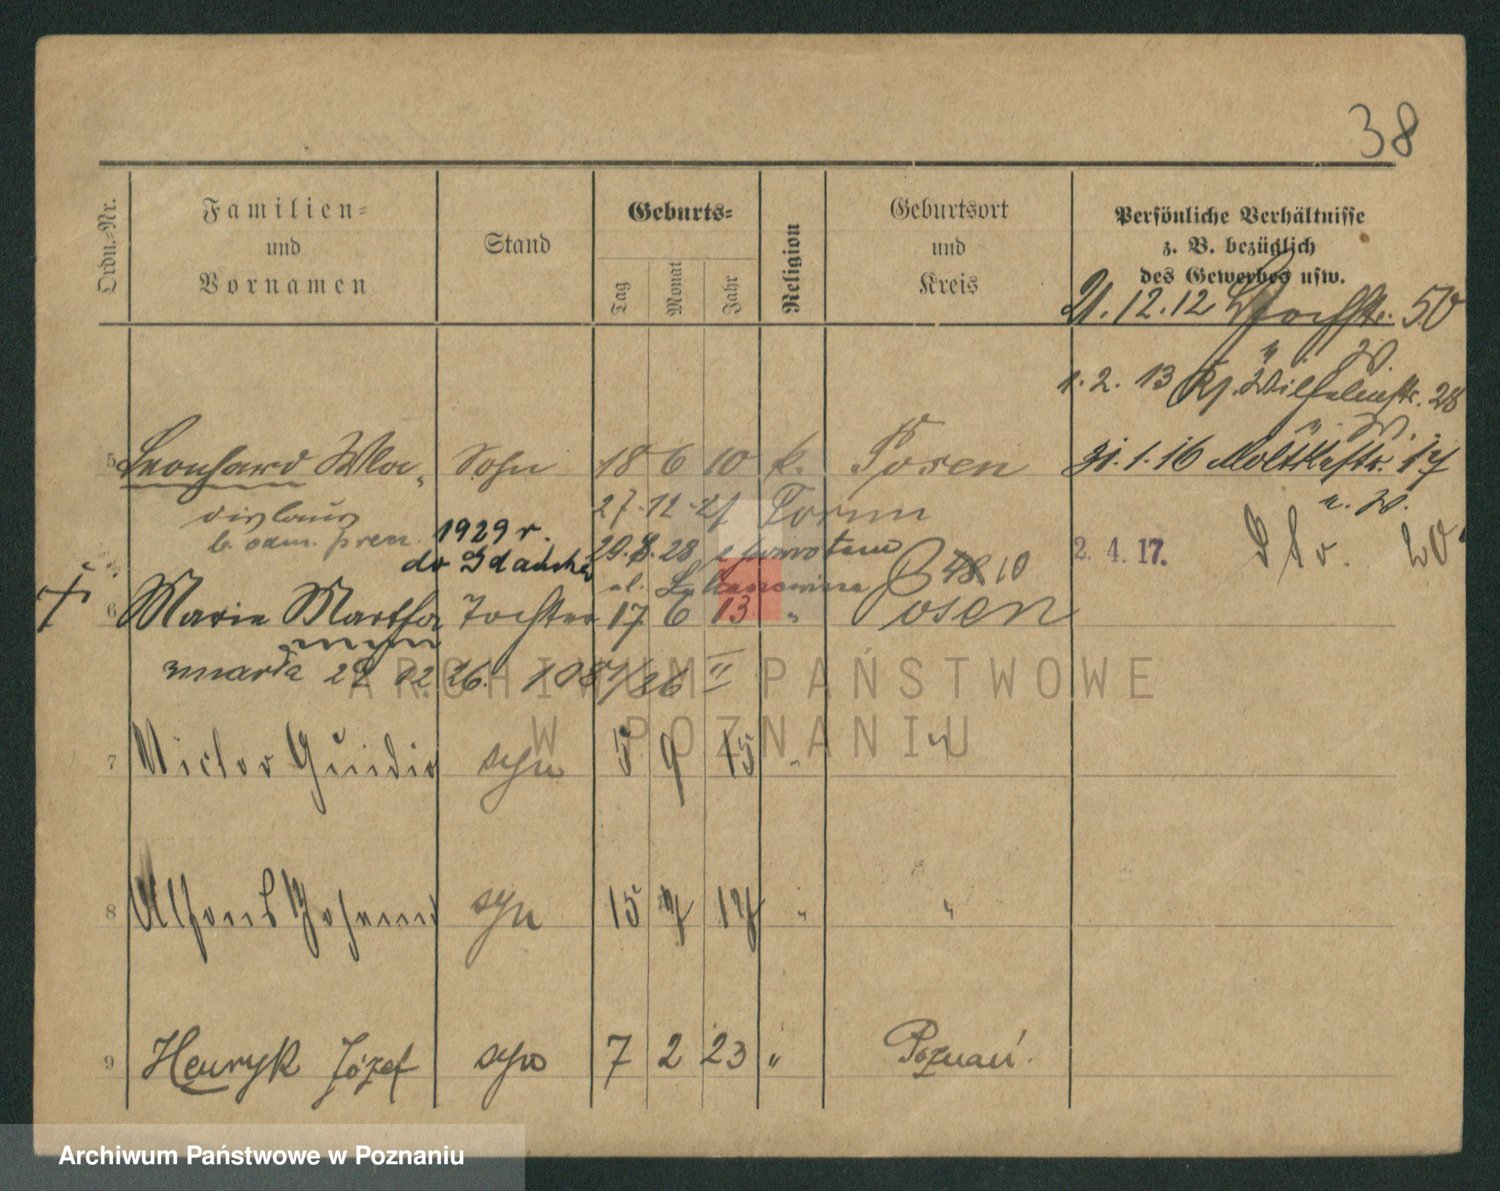 38
Ordn.-Nr.
Familien-
und
Vornamen
Stand
Geburts-
Tag
Monat
Jahr
Religion
Geburtsort
und
Kreis
Persönliche Verhältnisse
z. B. bezüglich
des Gewerbes usw.
21.12.12 50
1. 2. 13 Wilhelmstr. 28
5 Leonhard Wla- Sohn 18 6 10 k. Posen 31.1.16 Moltkestr. 17
dislaus 27.12.27 Torun
1929 r.
do Gdańska 29.8.28 z powrotem
2. 4. 17. 20
6 Marie Martha Tochter 17 6 13 " Posen
zmarła 29 12 26. 1081/26 II
7 Victor Guido syn 5 9 15 " "
8 Alfons Johann syn 15 7 17 " "
9 Henryk Józef syn 7 2 23 " Poznań.
ARCHIWUM PAŃSTWOWE
W POZNANIU
Archiwum Państwowe w Poznaniu